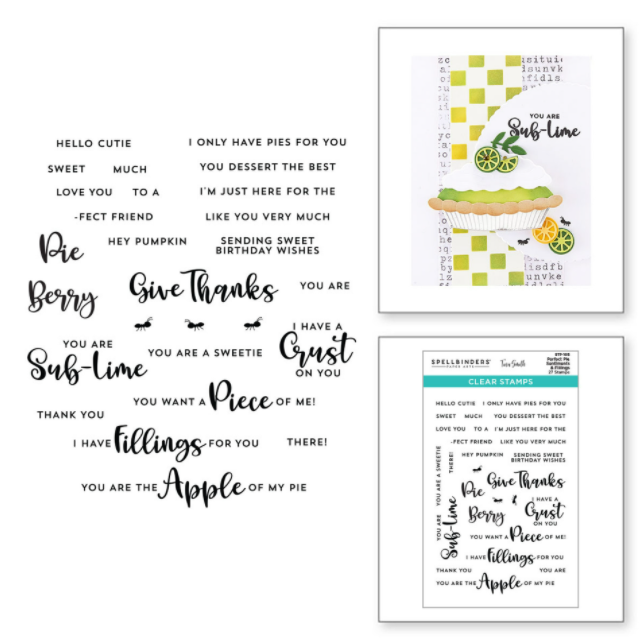 HELLO CUTIE
I ONLY HAVE PIES FOR YOU
SWEET MUCH
YOU DESSERT THE BEST
LOVE YOU TO A
I'M JUST HERE FOR THE
-FECT FRIEND
LIKE YOU VERY MUCH
Pie
HEY PUMPKIN
SENDING SWEET
BIRTHDAY WISHES
Berry
Give Thanks
YOU ARE
YOU ARE
Sub-lime
YOU ARE A SWEETIE
I HAVE A
Crust
ON YOU
YOU WANT A Piece OF ME!
THANK YOU
I HAVE Fillings FOR YOU
THERE!
YOU ARE THE Apple OF MY PIE
YOU ARE
Sub-lime
SPELLBINDERS
PAPER ARTS
Tina Smith
Perfect Pie
Sentiments
& Fillings
27 Stamps
CLEAR STAMPS
HELLO CUTIE I ONLY HAVE PIES FOR YOU
SWEET MUCH YOU DESSERT THE BEST
LOVE YOU TO A I'M JUST HERE FOR THE
-FECT FRIEND LIKE YOU VERY MUCH
YOU ARE A SWEETIE
THERE!
HEY PUMPKIN
SENDING SWEET
BIRTHDAY WISHES
Pie
Give Thanks
Berry
I HAVE A
Crust
ON YOU
YOU ARE
Sub-lime
YOU WANT A Piece OF ME!
I HAVE Fillings FOR YOU
THANK YOU YOU ARE
YOU ARE THE Apple OF MY PIE